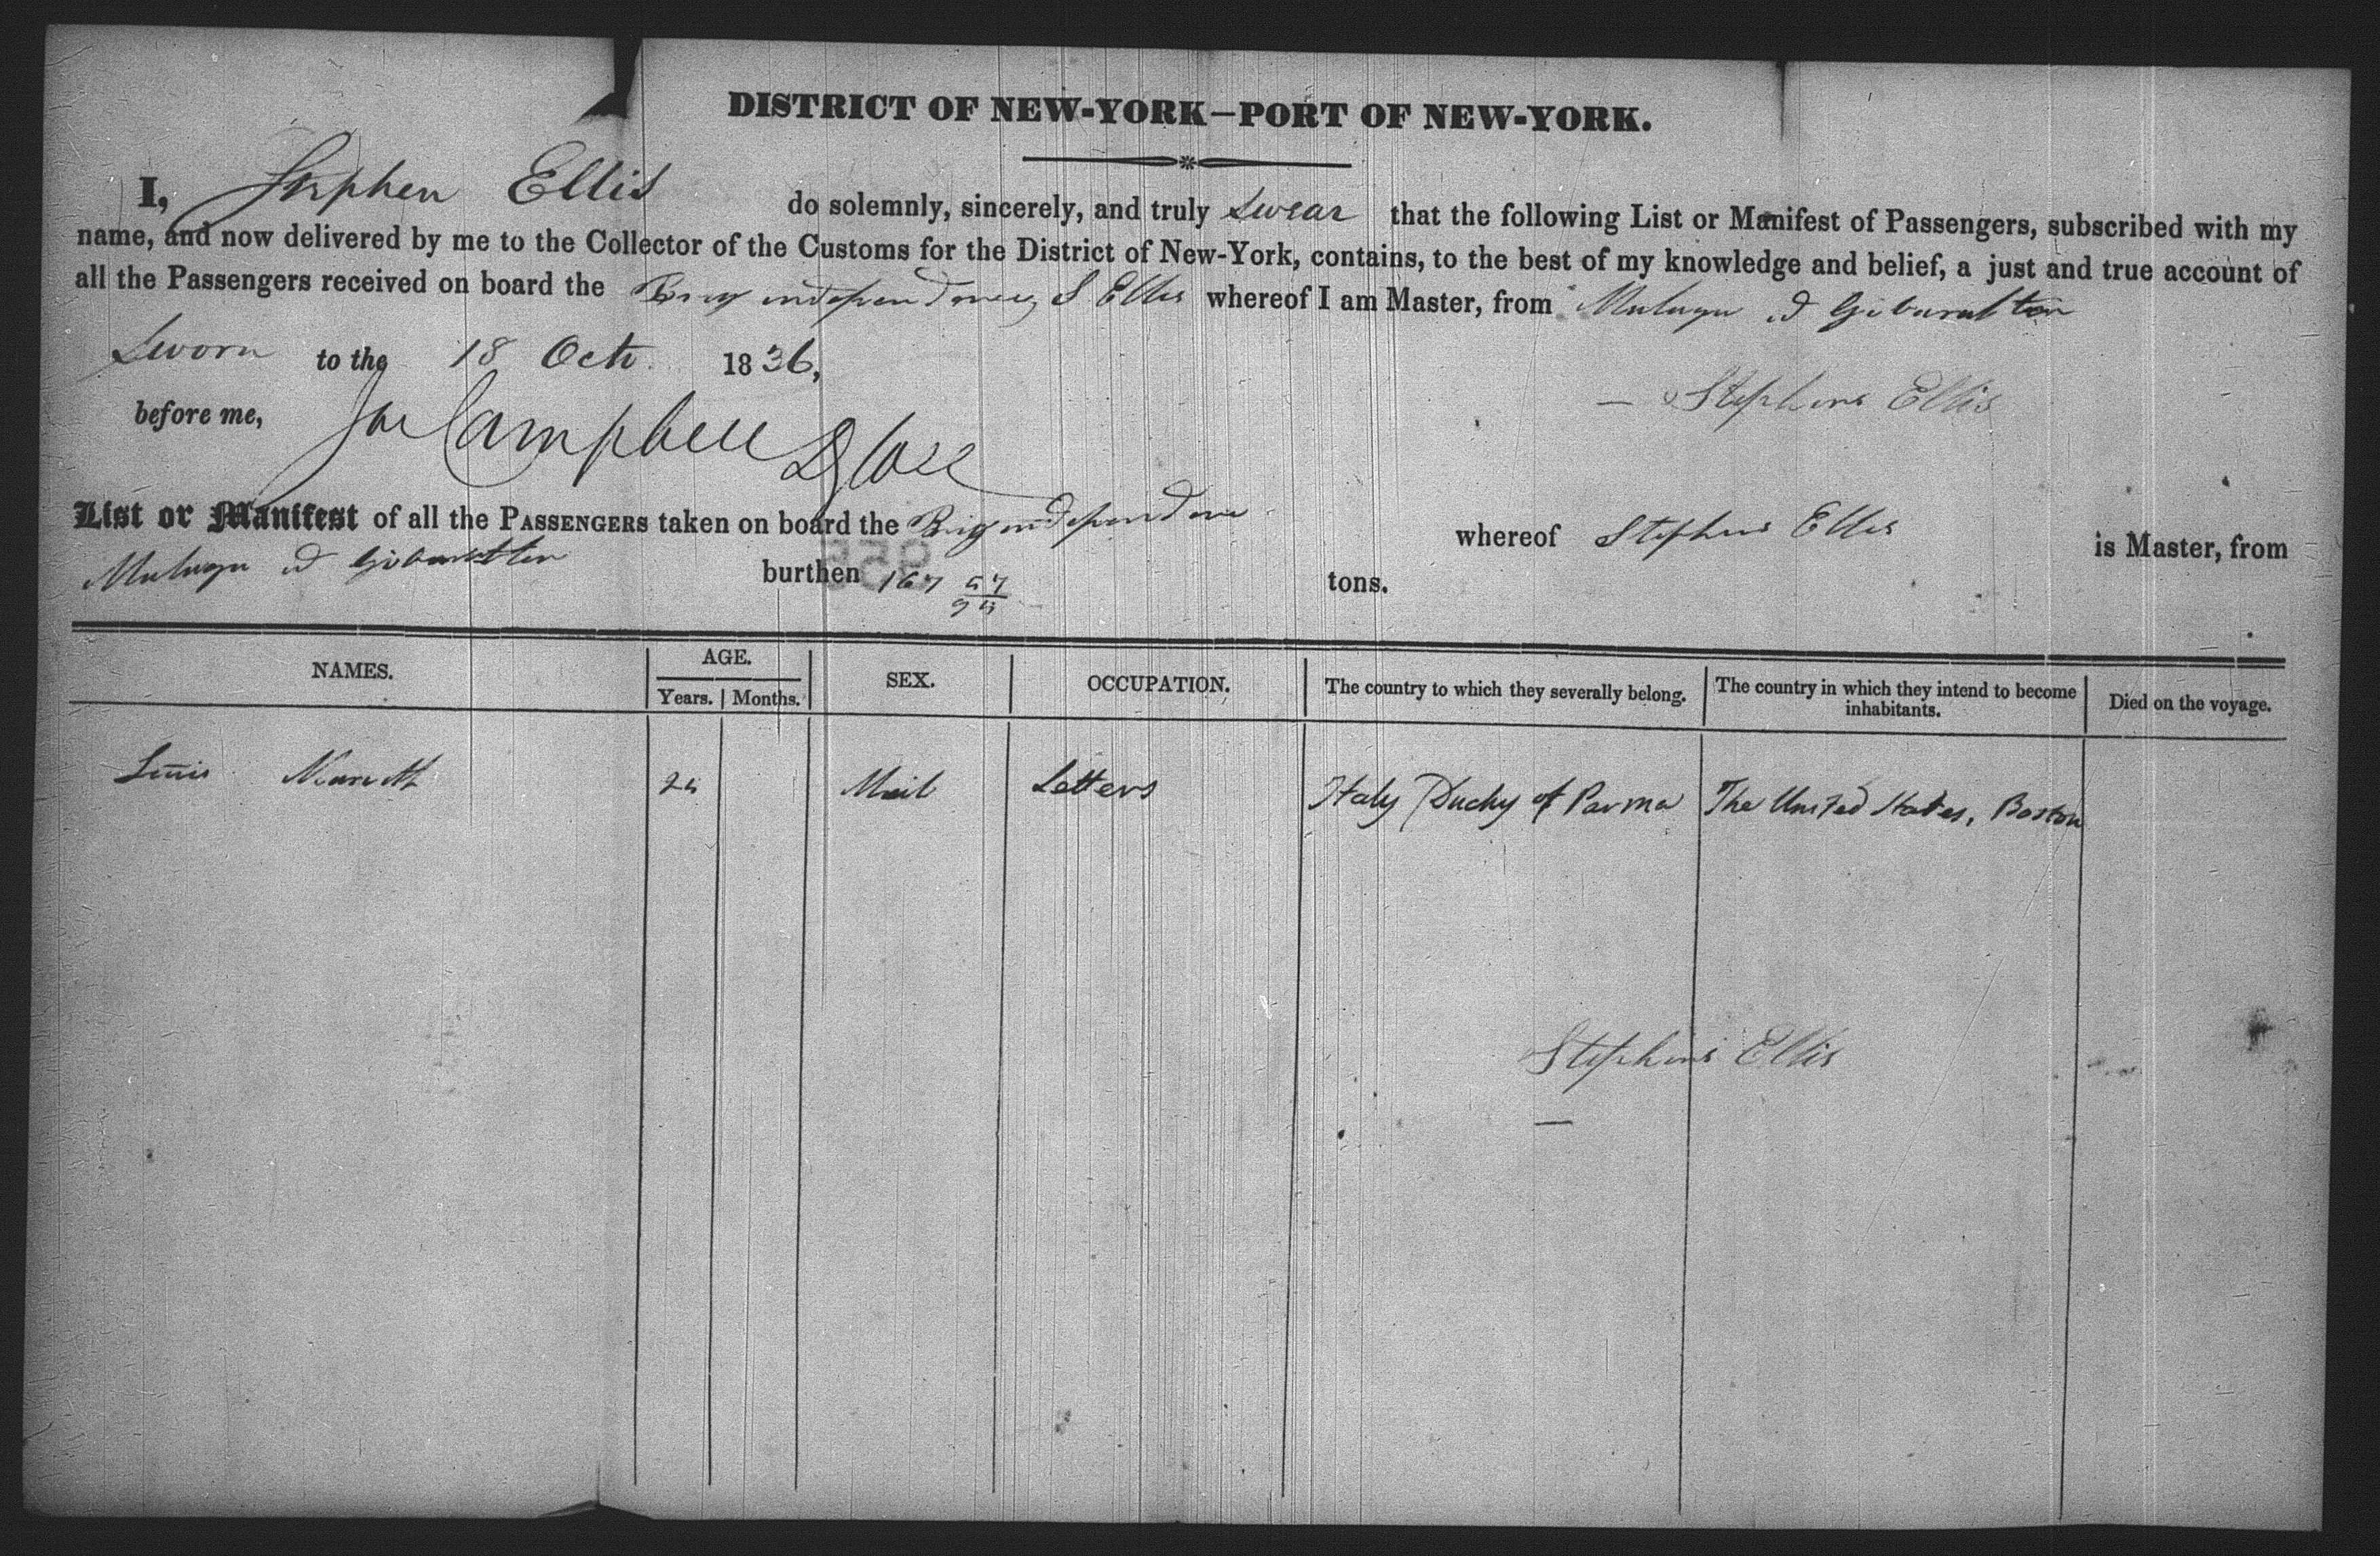 DISTRICT OF NEW-YORK—PORT OF NEW-YORK.
I, Stephen Ellis do solemnly, sincerely, and truly swear that the following List or Manifest of Passengers, subscribed with my
name, and now delivered by me to the Collector of the Customs for the District of New-York, contains, to the best of my knowledge and belief, a just and true account of
all the Passengers received on board the Brig independence S Ellis whereof I am Master, from
Sworn to the 18 Octr. 1836,
Stephens Ellis
before me, Campbell
List or Manifest of all the PASSENGERS taken on board the Brig whereof Stephens Ellis is Master, from
burthen 167 tons.
NAMES. AGE. Years. Months. SEX. OCCUPATION. The country to which they severally belong. The country in which they intend to become inhabitants. Died on the voyage.
Letters Italy Duchy of Parma The United States, Boston
Stephens Ellis